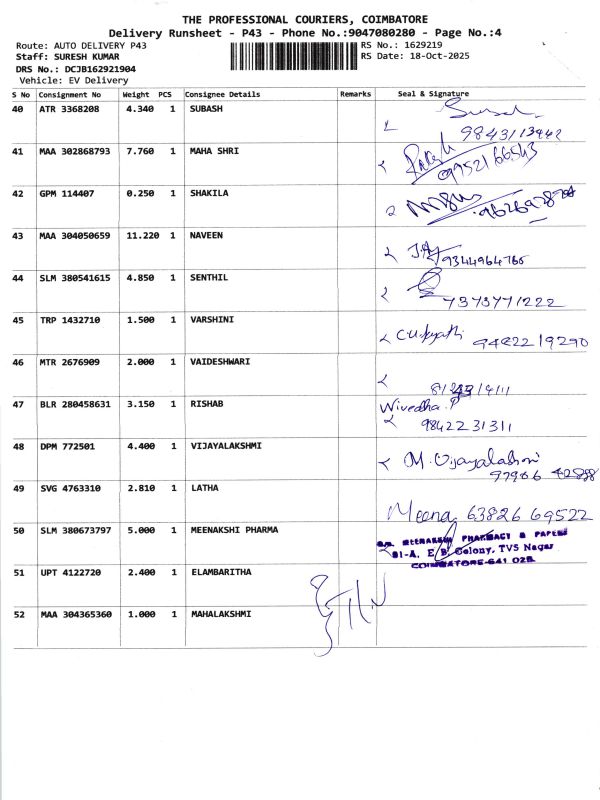 THE PROFESSIONAL COURIERS, COIMBATORE
Delivery Runsheet - P43 - Phone No.:9047080280 - Page No.:4
Route: AUTO DELIVERY P43 RS No.: 1629219
Staff: SURESH KUMAR RS Date: 18-Oct-2025
DRS No.: DCJB162921904
Vehicle: EV Delivery
S No Consignment No Weight PCS Consignee Details Remarks Seal & Signature
40 ATR 3368208 4.340 1 SUBASH
41 MAA 302868793 7.760 1 MAHA SHRI
09952166543
42 GPM 114407 0.250 1 SHAKILA
43 MAA 304050659 11.220 1 NAVEEN
9344964765
44 SLM 380541615 4.850 1 SENTHIL
7373771222
45 TRP 1432710 1.500 1 VARSHINI
9442219290
46 MTR 2676909 2.000 1 VAIDESHWARI
47 BLR 280458631 3.150 1 RISHAB Nivedha.P
9842231311
48 DPM 772501 4.400 1 VIJAYALAKSHMI
M. Vijayalakshmi
49 SVG 4763310 2.810 1 LATHA
Meena 63826 69522
50 SLM 380673797 5.000 1 MEENAKSHI PHARMA
MEENAKSHI PHARMACY & PAPERS
91-A, E.B. Colony, TVS Nagar
COIMBATORE-641 025
51 UPT 4122720 2.400 1 ELAMBARITHA
52 MAA 304365360 1.000 1 MAHALAKSHMI